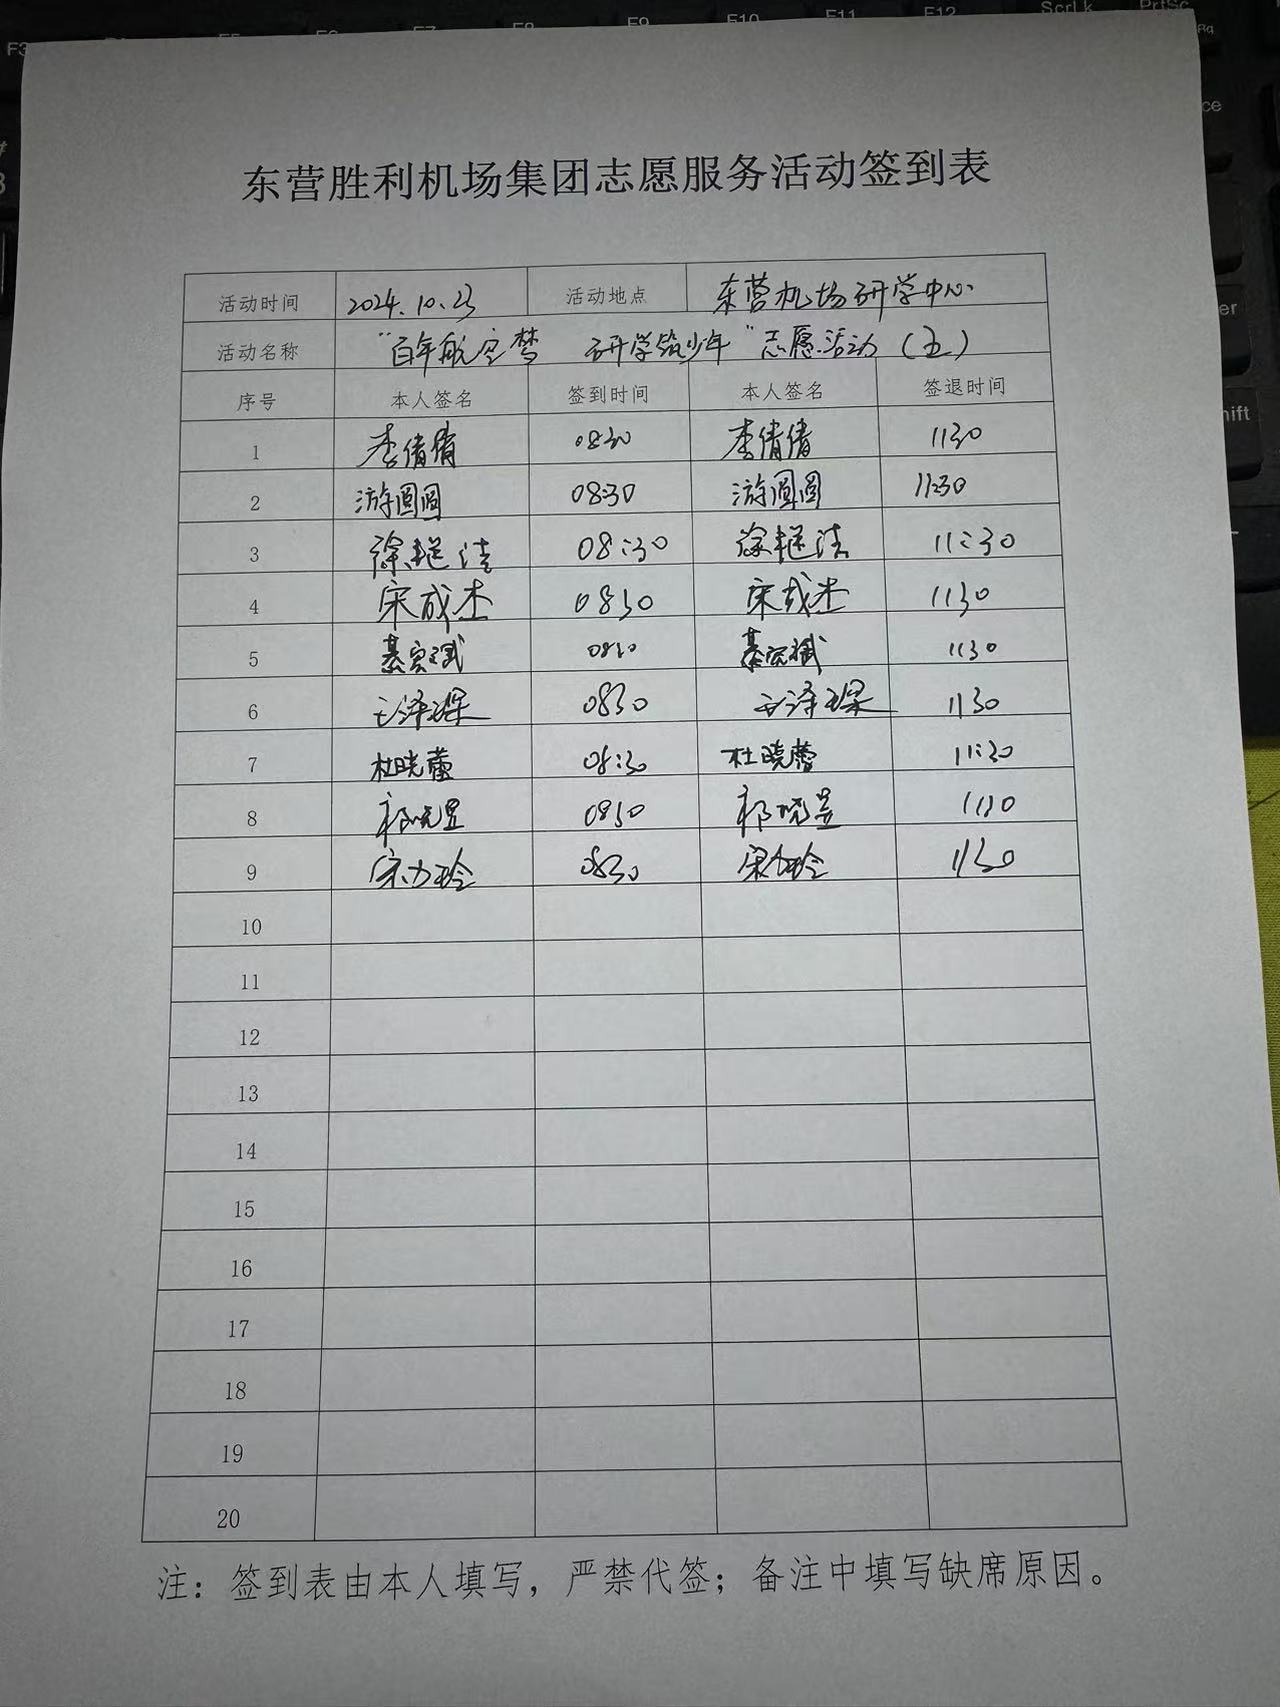 F3 F5 F6 F7 F8 F9 F10 F11 F12 ScrLk PrtSc
东营胜利机场集团志愿服务活动签到表
活动时间 2024.10.23 活动地点 东营机场研学中心
活动名称 “百年航空梦 研学筑少年”志愿活动（五）
序号 本人签名 签到时间 本人签名 签退时间
1 李倩倩 0830 李倩倩 1130
2 游圆圆 08:30 游圆圆 11:30
3 徐继洁 08:30 徐继洁 11:30
4 宋成杰 0830 宋成杰 1130
5 0830 1130
6 王泽琛 0830 王泽琛 1130
7 杜晓蕾 08:30 杜晓蕾 11:30
8 祁晓昱 0830 祁晓昱 1130
9 宋力玲 0830 宋力玲 1130
10
11
12
13
14
15
16
17
18
19
20
注：签到表由本人填写，严禁代签；备注中填写缺席原因。